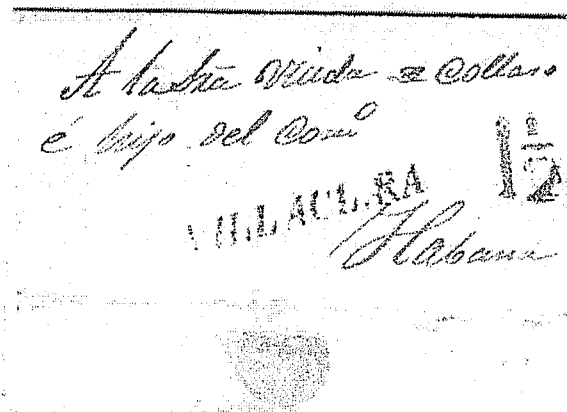 A la Sra Viuda de Collazo
é hijo del Comº
1½
VILLACLARA
Habana